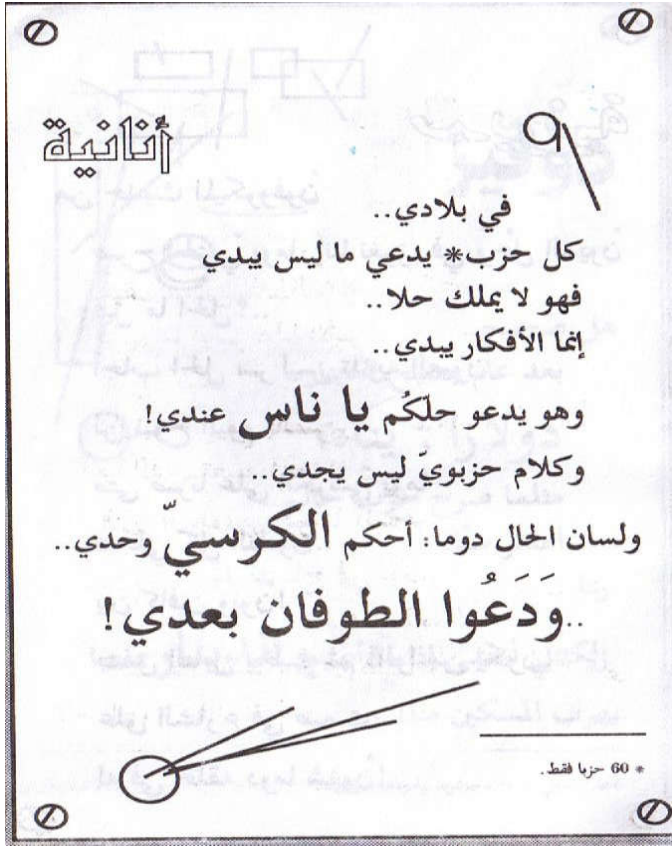 أنانية
في بلادي..
كل حزب* يدعي ما ليس يبدي
فهو لا يملك حلا..
إنما الأفكار يبدي..
وهو يدعو حلكُم يا ناس عندي!
وكلام حزبويّ ليس يجدي..
ولسان الحال دوما: أحكم الكرسيّ وحدي..
..وَدَعُوا الطوفان بعدي!
* 60 حزبا فقط.